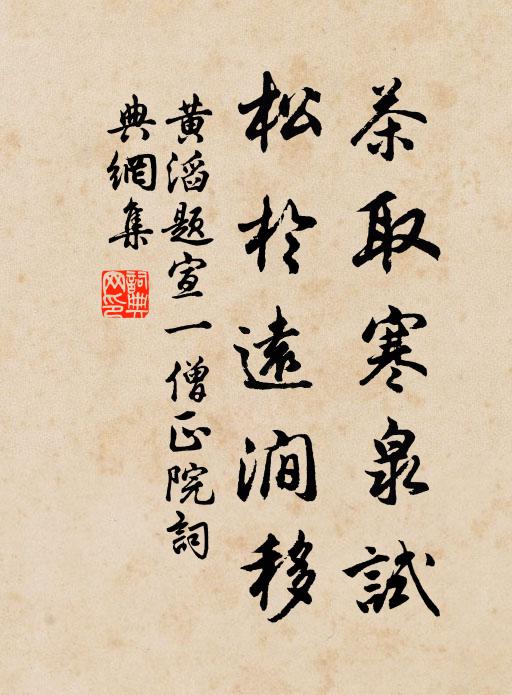 茶取寒泉試
松於遠澗移
黃滔題宣一僧正院詞
典網集
詞典網印